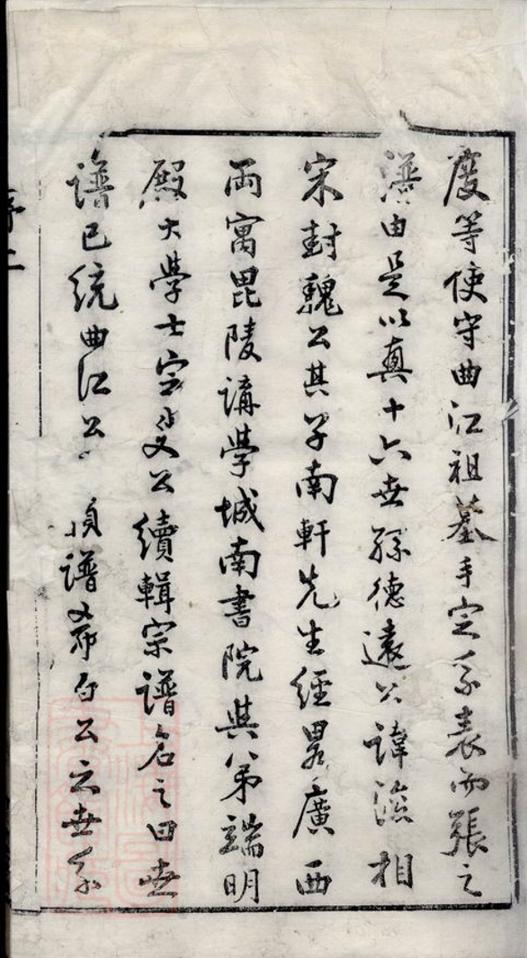 度等使守曲江祖墓手定系表而張之
譜由是以真十六世孫德遠公諱浚相
宋封魏公其子南軒先生經畧廣西
兩寓毘陵講學城南書院與公弟端明
殿大學士定叟公續輯宗譜名之曰世
譜已統曲江公 譜 自公六世系
序二